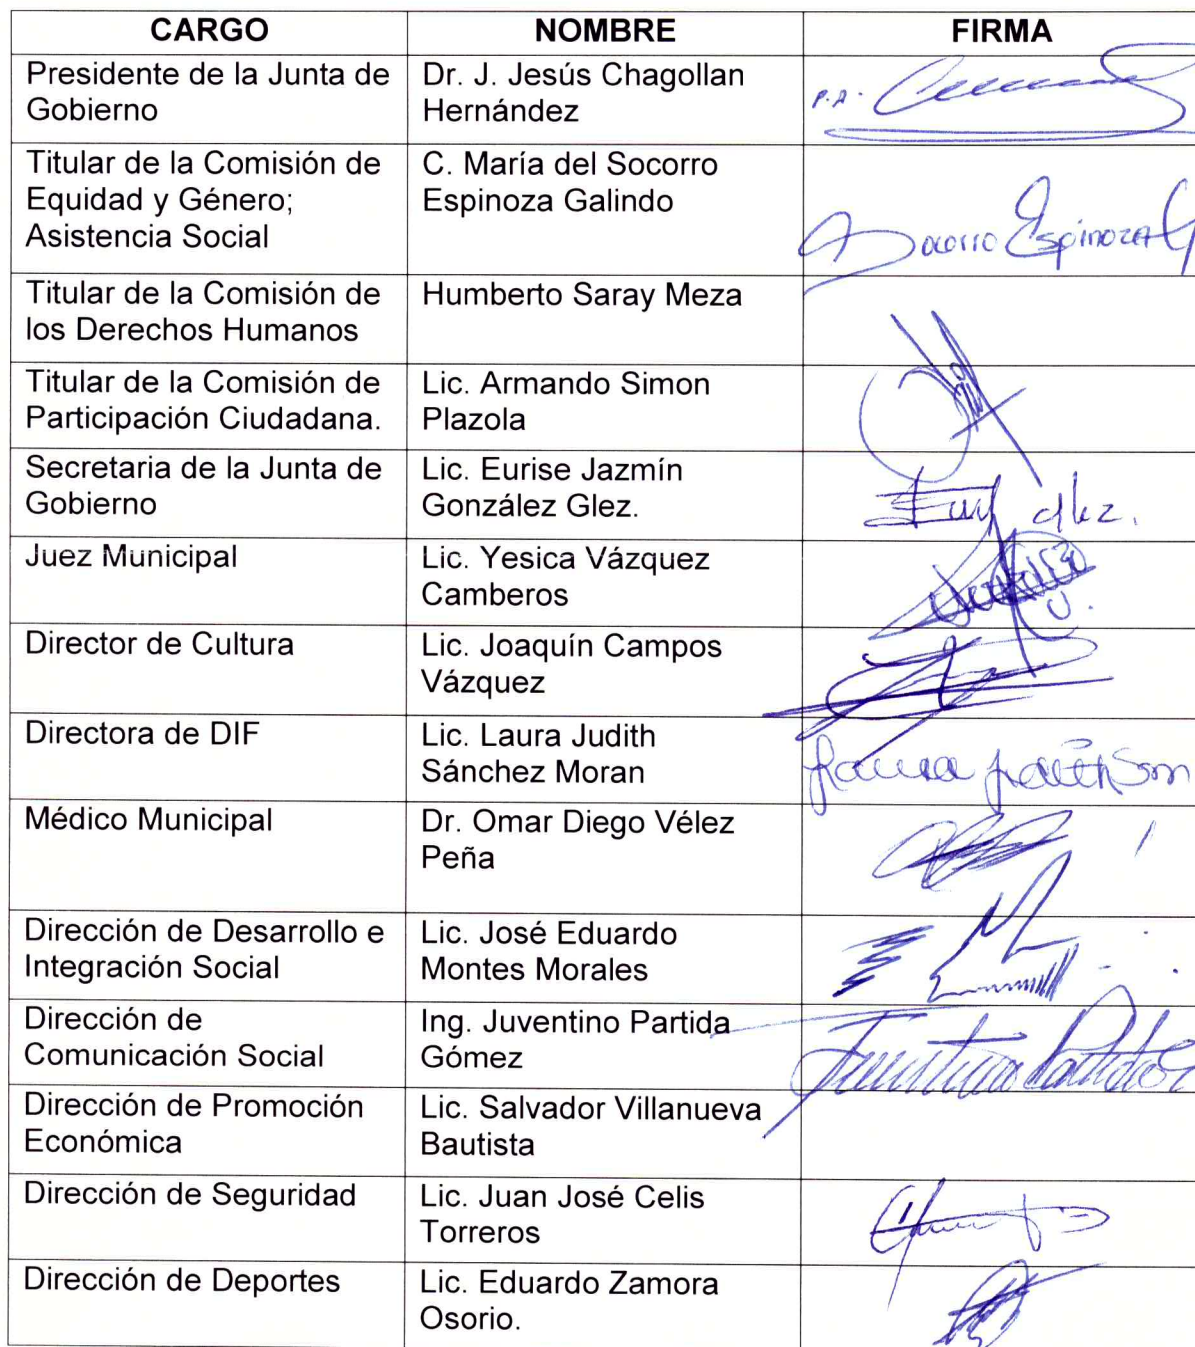 CARGO NOMBRE FIRMA
Presidente de la Junta de Gobierno
Dr. J. Jesús Chagollan Hernández
P.A.
Titular de la Comisión de Equidad y Género; Asistencia Social
C. María del Socorro Espinoza Galindo
Socorro Espinoza G
Titular de la Comisión de los Derechos Humanos
Humberto Saray Meza
Titular de la Comisión de Participación Ciudadana.
Lic. Armando Simon Plazola
Secretaria de la Junta de Gobierno
Lic. Eurise Jazmín González Glez.
Juez Municipal
Lic. Yesica Vázquez Camberos
Director de Cultura
Lic. Joaquín Campos Vázquez
Directora de DIF
Lic. Laura Judith Sánchez Moran
Médico Municipal
Dr. Omar Diego Vélez Peña
Dirección de Desarrollo e Integración Social
Lic. José Eduardo Montes Morales
Dirección de Comunicación Social
Ing. Juventino Partida Gómez
Dirección de Promoción Económica
Lic. Salvador Villanueva Bautista
Dirección de Seguridad
Lic. Juan José Celis Torreros
Dirección de Deportes
Lic. Eduardo Zamora Osorio.